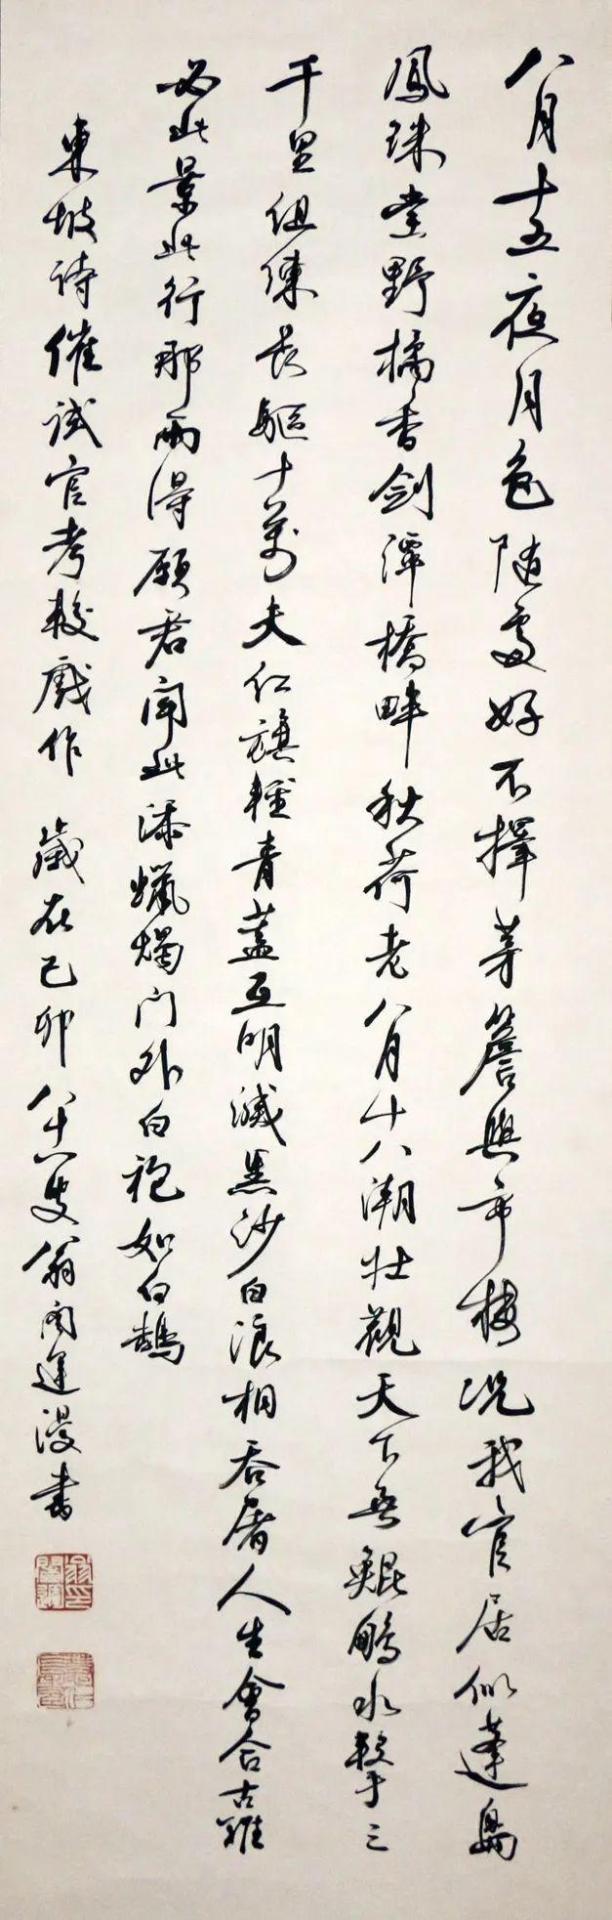 八月十五夜月色隨處好不擇茅簷與市樓況我官居似蓬島
鳳珠堂野橘香劍潭橋畔秋荷老八月十八潮壯觀天下無鯤鵬水擊三
千里組練長驅十萬夫紅旗輕青蓋互明滅黑沙白浪相吞屠人生會合古難
必此景此行那兩得願君聞此添蠟燭门外白袍如白鵠
東坡詩催試官考較戲作 歲在己卯八十六叟翁闓運漫書
翁印闓運